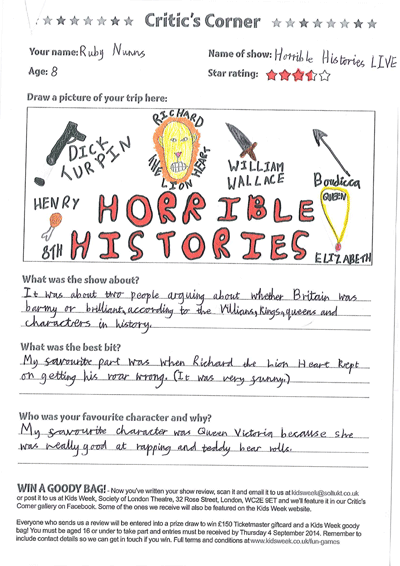 Critic's Corner
Your name: Ruby Nunns
Name of show: Horrible Histories LIVE
Age: 8
Star rating:
Draw a picture of your trip here:
DICK TURPIN
RICHARD THE LION HEART
WILLIAM WALLACE
Boudicca
HENRY 8TH
QUEEN ELIZABETH
HORRIBLE
HISTORIES
What was the show about?
It was about two people arguing about whether Britain was
barmy or brilliant, according to the Villians, kings, queens and
charactrers in history.
What was the best bit?
My favourite part was when Richard the Lion Heart kept
on getting his roar wrong. (It was very funny.)
Who was your favourite character and why?
My favourite character was Queen Victoria because she
was really good at rapping and teddy bear rolls.
WIN A GOODY BAG! - Now you've written your show review, scan it and email it to us at kidsweek@soltukt.co.uk
or post it to us at Kids Week, Society of London Theatre, 32 Rose Street, London, WC2E 9ET and we'll feature it in our Critic's
Corner gallery on Facebook. Some of the ones we receive will also be featured on the Kids Week website.
Everyone who sends us a review will be entered into a prize draw to win £150 Ticketmaster giftcard and a Kids Week goody
bag! You must be aged 16 or under to take part and entries must be received by Thursday 4 September 2014. Remember to
include contact details so we can get in touch if you win. Full terms and conditions at www.kidsweek.co.uk/fun-games